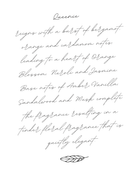 Queenie
reigns with a burst of bergamot
orange and cardamon notes
leading to a heart of Orange
Blossom, Neroli and Jasmine.
Base notes of Amber, Vanilla
Sandalwood and Musk complete
the fragrance resulting in a
timber floral fragrance that is
quietly elegant.